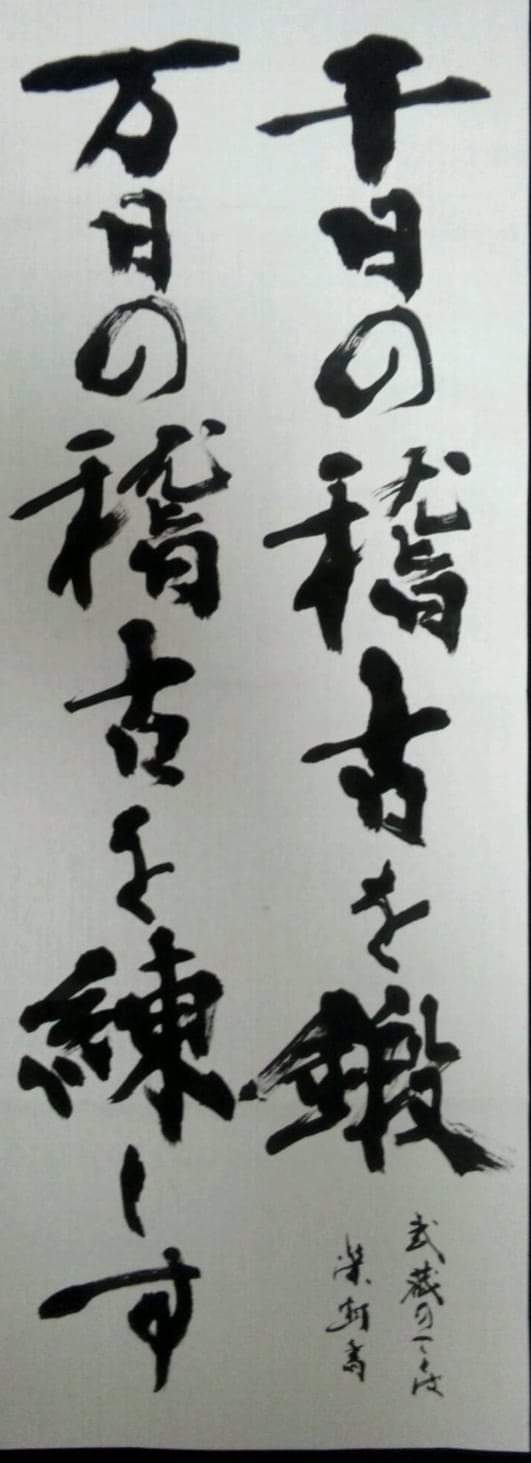 千日の稽古を鍛
万日の稽古を練とす
武蔵のことば
書